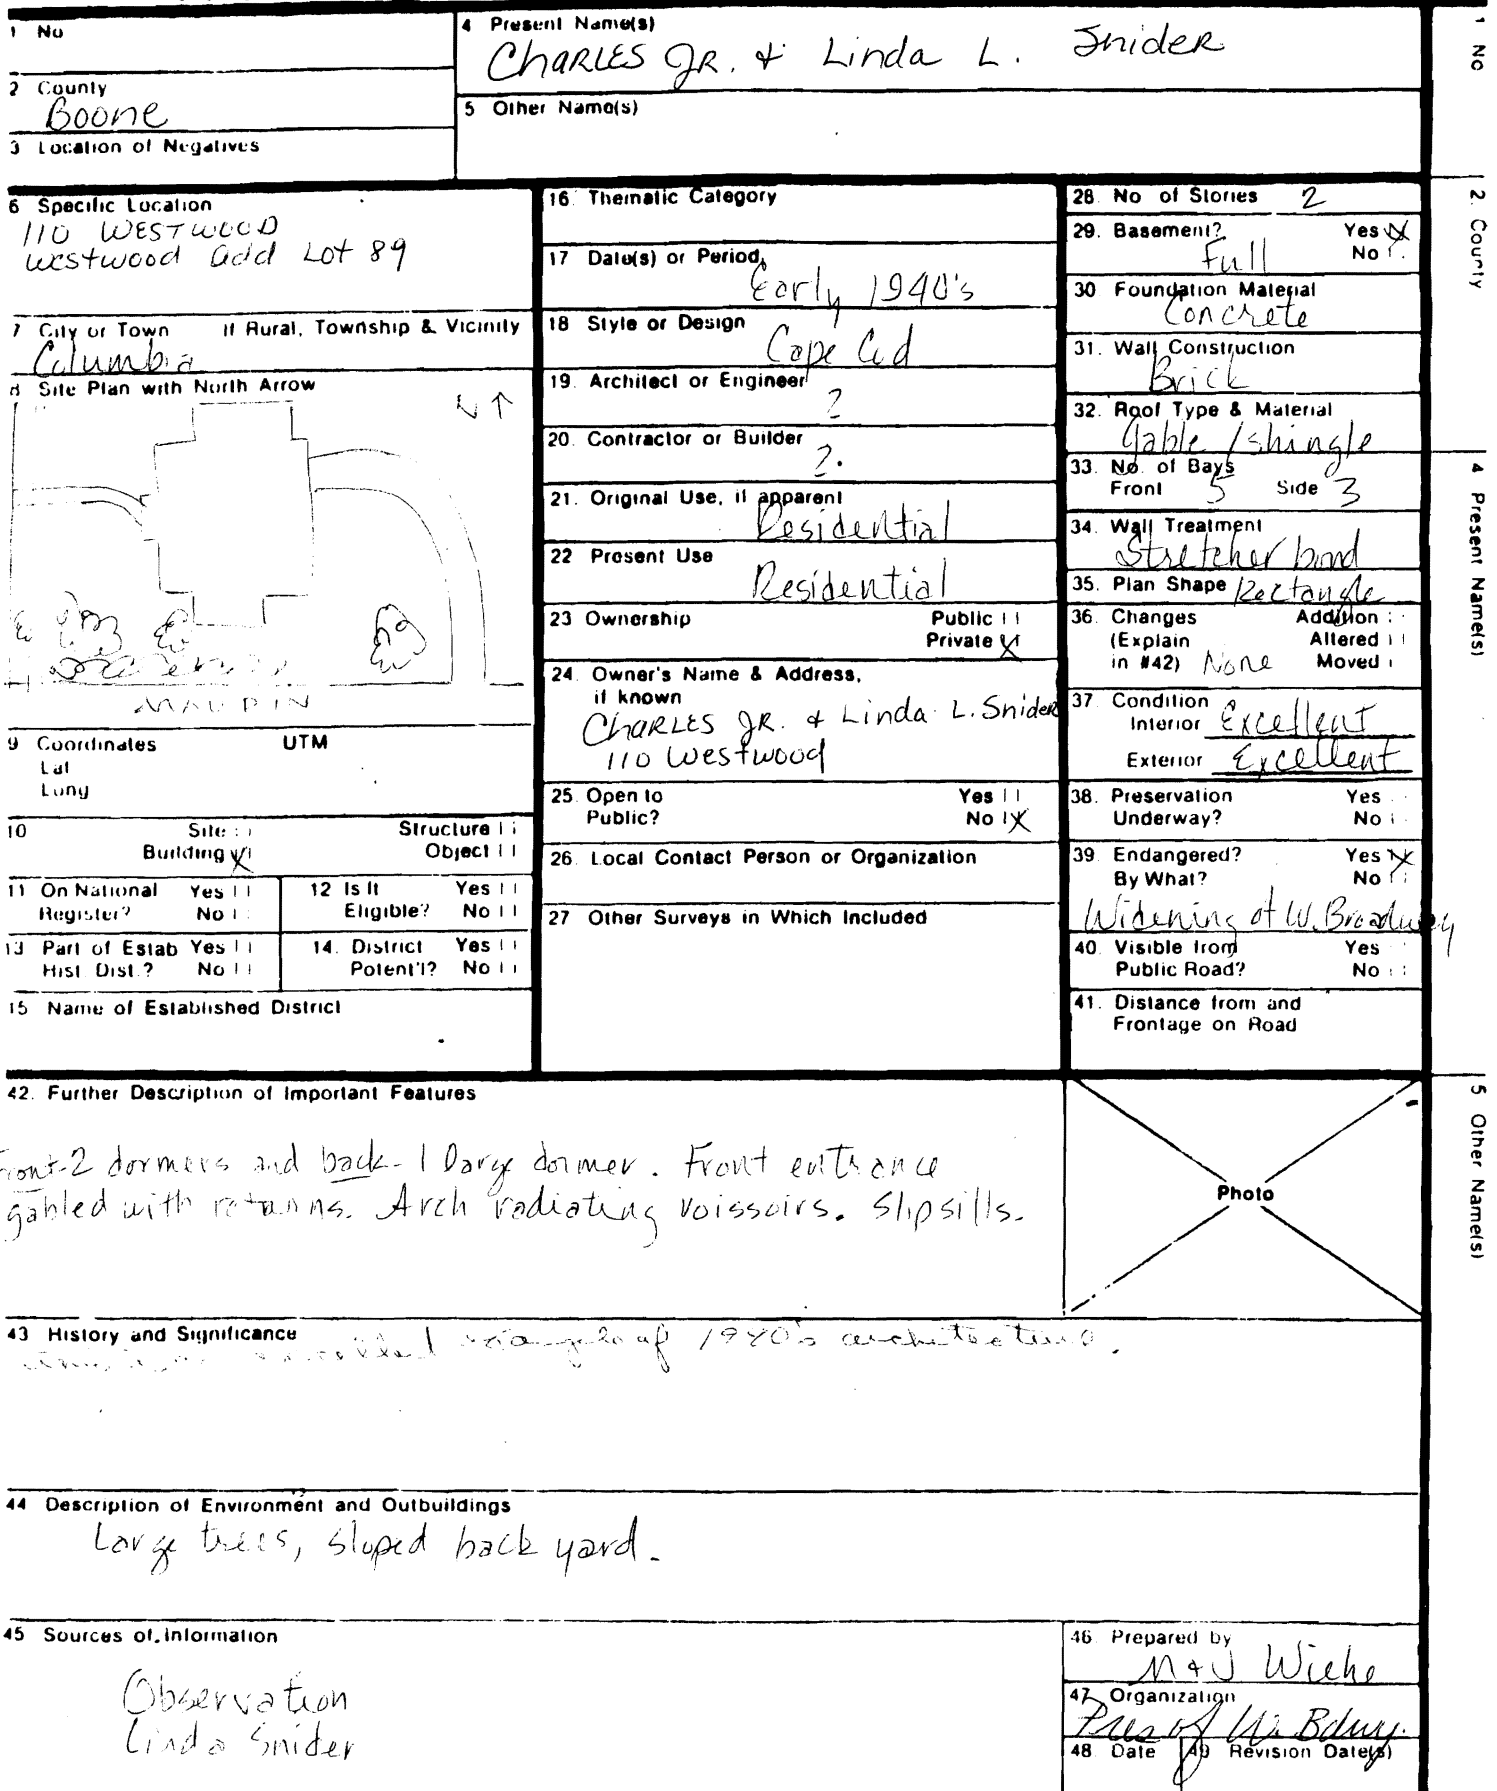 1 No
4 Present Name(s)
CHARLES JR. & Linda L. Snider
2 County
Boone
5 Other Name(s)
3 Location of Negatives
6 Specific Location
110 WESTWOOD
Westwood add Lot 89
7 City or Town If Rural, Township & Vicinity
Columbia
8 Site Plan with North Arrow
N
MAUPIN
9 Coordinates UTM
Lat
Long
10 Site
Structure
Building
Object
11 On National Register? Yes No
12 Is It Eligible? Yes No
13 Part of Estab Hist. Dist.? Yes No
14. District Potent'l? Yes No
15 Name of Established District
16. Thematic Category
17 Date(s) or Period
Early 1940's
18 Style or Design
Cape Cod
19. Architect or Engineer
?
20. Contractor or Builder
?.
21. Original Use, if apparent
Residential
22 Present Use
Residential
23 Ownership Public
Private X
24. Owner's Name & Address,
if known
CHARLES JR. & Linda L. Snider
110 Westwood
25. Open to Public? Yes
No X
26. Local Contact Person or Organization
27 Other Surveys in Which Included
28. No of Stories 2
29. Basement? Yes X
Full No
30 Foundation Material
Concrete
31. Wall Construction
Brick
32. Roof Type & Material
Gable / shingle
33. No. of Bays
Front 5 Side 3
34. Wall Treatment
Stretcher bond
35. Plan Shape Rectangle
36. Changes Addition
(Explain Altered
in #42) None Moved
37. Condition
Interior Excellent
Exterior Excellent
38. Preservation Yes
Underway? No
39. Endangered? Yes X
By What? No
Widening of W. Broadway
40. Visible from Yes
Public Road? No
41. Distance from and
Frontage on Road
42. Further Description of Important Features
Front-2 dormers and back-1 large dormer. Front entrance
gabled with returns. Arch radiating voissoirs. Slipsills.
Photo
43 History and Significance
1940's architecture.
44 Description of Environment and Outbuildings
Large trees, sloped back yard.
45 Sources of Information
Observation
Linda Snider
46. Prepared by
M & J Wiehe
47. Organization
Pres of W. Bdwy.
48 Date 49 Revision Date(s)
1 No
2. County
4 Present Name(s)
5 Other Name(s)